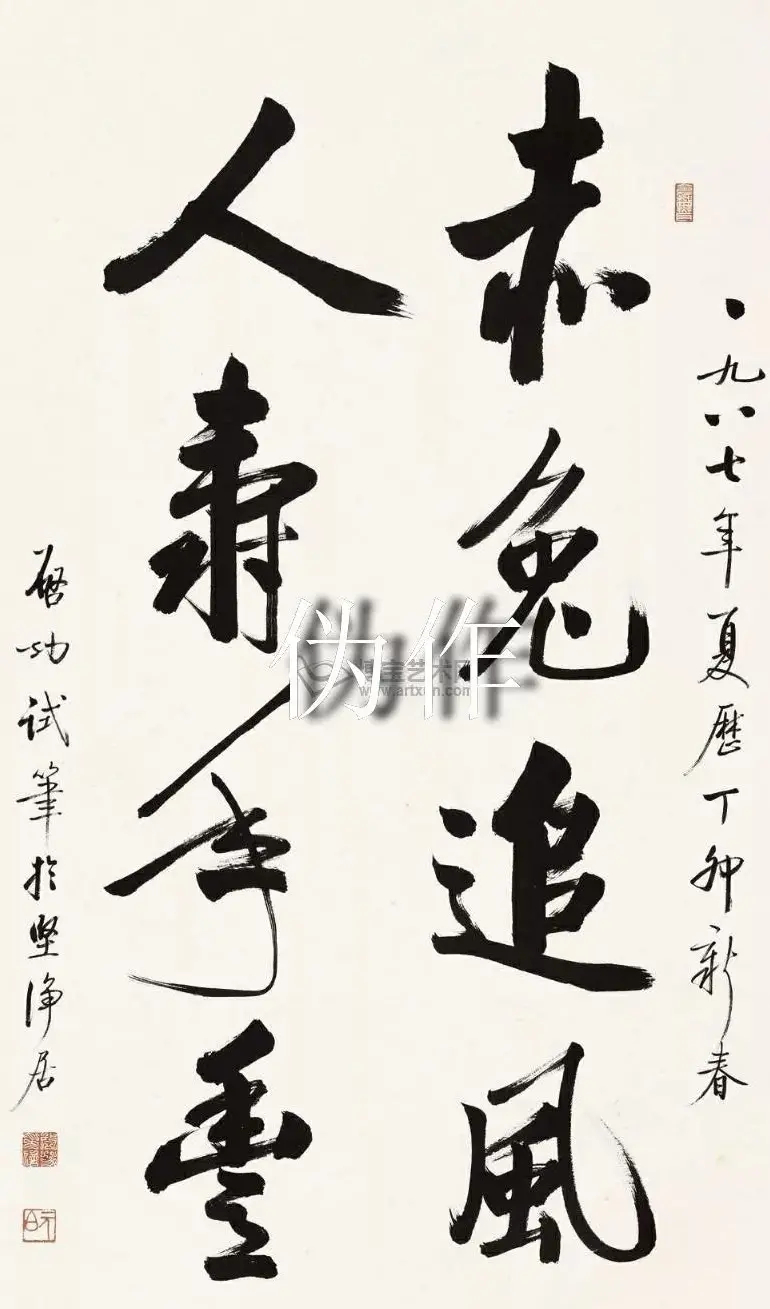 一九八七年夏歷丁卯新春
赤兔追風
人壽年豐
啓功试筆於堅淨居
伪作
博宝艺术网
www.artxun.com